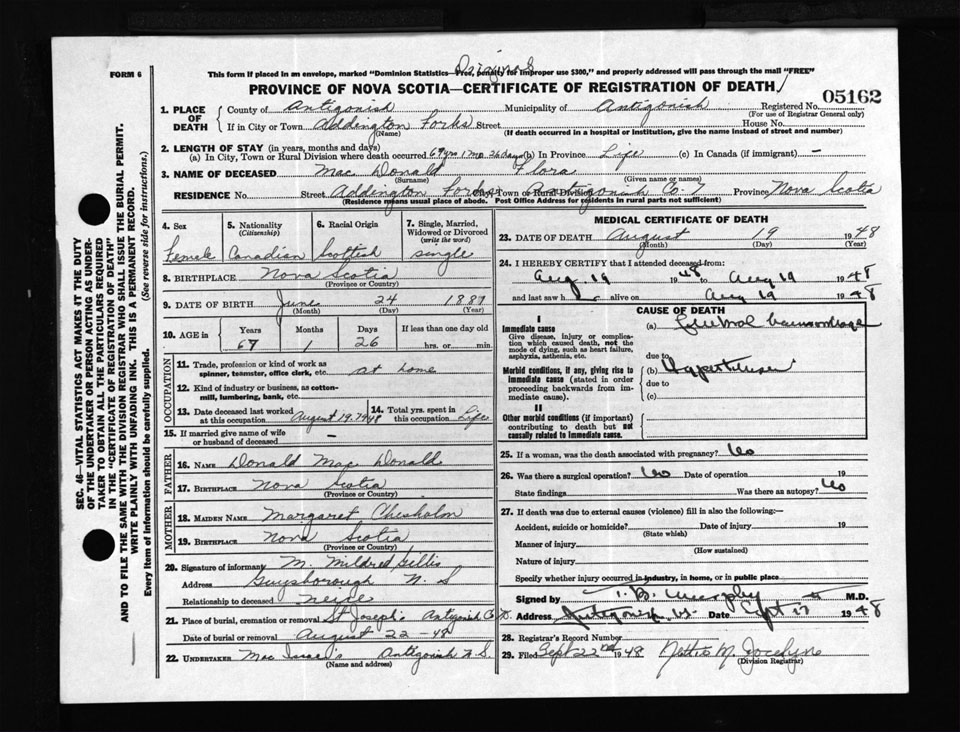 FORM 6
Original
This form if placed in an envelope, marked "Dominion Statistics—Free, penalty for improper use $300," and properly addressed will pass through the mail "FREE"
PROVINCE OF NOVA SCOTIA—CERTIFICATE OF REGISTRATION OF DEATH
05162
1. PLACE OF DEATH
County of Antigonish Municipality of Antigonish Registered No.
(For use of Registrar General only)
If in City or Town Addington Forks Street House No.
(Name) (If death occurred in a hospital or institution, give the name instead of street and number)
2. LENGTH OF STAY (in years, months and days)
(a) In City, Town or Rural Division where death occurred 67 yrs 1 mo 26 days (b) In Province Life (c) In Canada (if immigrant) —
3. NAME OF DECEASED Mac Donald Flora
(Surname) (Given name or names)
RESIDENCE No. Street Addington Forks City, Town or Rural Division Antigonish Co. Province Nova Scotia
(Residence means usual place of abode. Post Office Address for residents in rural parts not sufficient)
4. Sex
Female
5. Nationality
(Citizenship)
Canadian
6. Racial Origin
Scottish
7. Single, Married,
Widowed or Divorced
(write the word)
single
8. BIRTHPLACE Nova Scotia
(Province or Country)
9. DATE OF BIRTH June 24 1881
(Month) (Day) (Year)
10. AGE in
Years Months Days If less than one day old
67 1 26 hrs. or min.
OCCUPATION
11. Trade, profession or kind of work as
spinner, teamster, office clerk, etc. at home
12. Kind of industry or business, as cotton-
mill, lumbering, bank, etc.
13. Date deceased last worked
at this occupation August 19, 1948
14. Total yrs. spent in
this occupation Life
15. If married give name of wife
or husband of deceased —
FATHER
16. NAME Donald Mac Donald
17. BIRTHPLACE Nova Scotia
(Province or Country)
MOTHER
18. MAIDEN NAME Margaret Chisholm
19. BIRTHPLACE Nova Scotia
(Province or Country)
20. Signature of informant M. Mildred Gillis
Address Guysborough N. S
Relationship to deceased neice
21. Place of burial, cremation or removal St Joseph's Antigonish Co
Date of burial or removal August 22 - 48
22. UNDERTAKER Mac Isaac's Antigonish N.S.
(Name and address)
MEDICAL CERTIFICATE OF DEATH
23. DATE OF DEATH August 19 1948
(Month) (Day) (Year)
24. I HEREBY CERTIFY that I attended deceased from:
Aug. 19 1948 to Aug 19 1948
and last saw h alive on Aug 19 1948
CAUSE OF DEATH
I
Immediate cause
Give disease, injury or complica-
tion which caused death, not the
mode of dying, such as heart failure,
asphyxia, asthenia, etc.
(a) Cerebral haemorrhage
due to
Morbid conditions, if any, giving rise to
immediate cause (stated in order
proceeding backwards from im-
mediate cause).
(b) Hypertension
due to
(c)
II
Other morbid conditions (if important)
contributing to death but not
causally related to immediate cause.
25. If a woman, was the death associated with pregnancy? No
26. Was there a surgical operation? No Date of operation 19
State findings Was there an autopsy? No
27. If death was due to external causes (violence) fill in also the following:—
Accident, suicide or homicide? Date of injury 19
(State which)
Manner of injury
(How sustained)
Nature of injury
Specify whether injury occurred in industry, in home, or in public place
Signed by T. B. Murphy M.D.
Address Antigonish N.S. Date Sept 17 1948
28. Registrar's Record Number
29. Filed Sept 22nd 1948 M. Jocelyn
(Division Registrar)
SEC. 46—VITAL STATISTICS ACT MAKES IT THE DUTY
OF THE UNDERTAKER OR PERSON ACTING AS UNDER-
TAKER TO OBTAIN ALL THE PARTICULARS REQUIRED
IN THE "CERTIFICATE OF REGISTRATION OF DEATH"
AND TO FILE THE SAME WITH THE DIVISION REGISTRAR WHO SHALL ISSUE THE BURIAL PERMIT.
WRITE PLAINLY WITH UNFADING INK. THIS IS A PERMANENT RECORD.
Every item of Information should be carefully supplied. (See reverse side for instructions.)